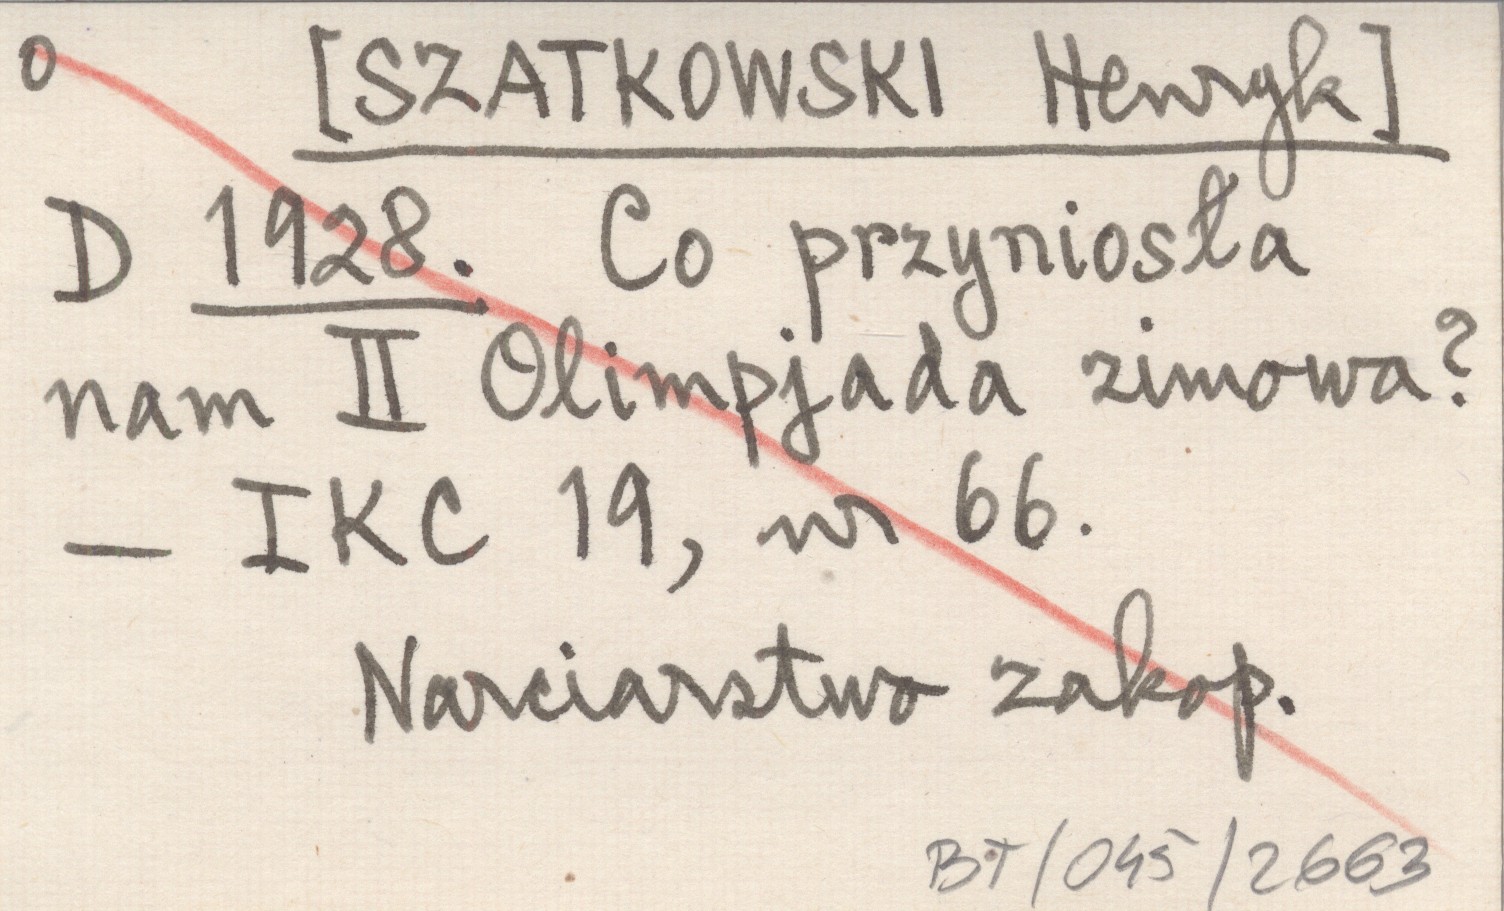 o [SZATKOWSKI Henryk]
D 1928. Co przyniosła
nam II Olimpjada zimowa?
— IKC 19, nr 66.
Narciarstwo zakop.
BT/045/2663